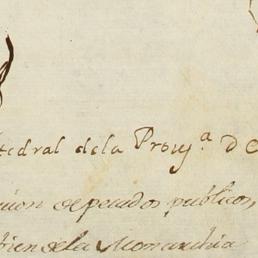 tedral dela Proyª. d C
cion de pecados publicos,
bien de la Monarchia